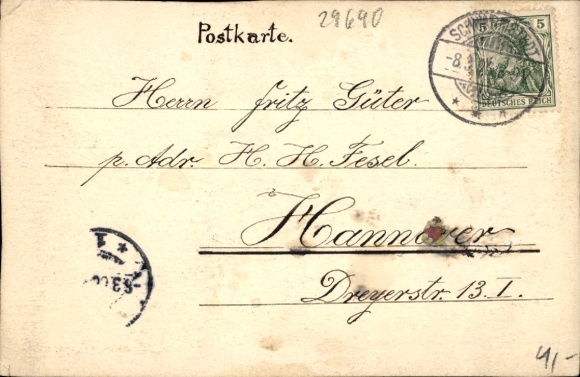 29690
Postkarte.
5 5
DEUTSCHES REICH
Herrn Fritz Güter
p. Adr. H. H. Fesel.
Hannover
Dreyerstr. 13. I.
41,-